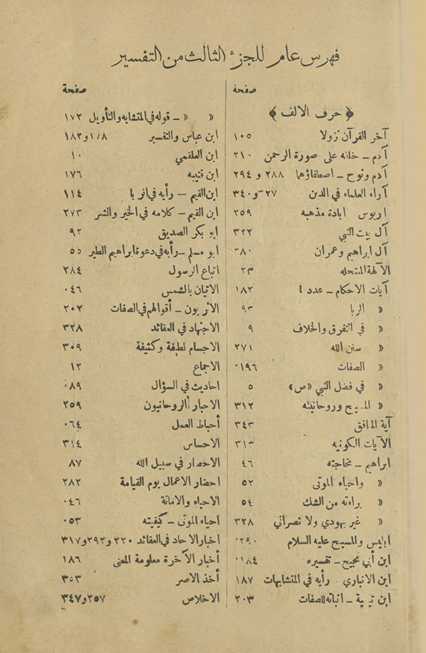 فهرس عام للجزء الثالث من التفسير
صفحة
﴿ حرف الالف ﴾
آخر القرآن نزولا ١٠٥
آدم ــ خلقه على صورة الرحمن ٢١٠
آدم ونوح ــ اصطفاؤهما ٢٨٨ و ٢٩٤
آراء العلماء في الدين ٢٧ و ٣٤٠
اريوس ابادة مذهبه ٢٥٩
آل بيت النبي ٣٢٢
آل ابراهيم وعمران ٣٨٠
الآلهة المنتحله ٢٣
آيات الاحكام ــ عدد ١٨٢
« الربا ٩٣
« في التفرق والخلاف ٩
« سنن الله ٢٧١
« الصفات ١٩٦
« في فضل النبي «ص» ٥
« المسيح وروحانيته ٣١٢
آية الميثاق ٣٤٣
الآيات الكونيه ٣١٣
ابراهيم ــ محاجته ٤٦
« واحياء الموتى ٥٢
« براءته من الشك ٥٤
« غير يهودي ولا نصراني ٣٢٨
ابليس والمسيح عليه السلام ٢٩٠
ابن أبي نجيح ــ تفسيره ١٨٤
ابن الانباري رأيه في المتشابهات ١٨٧
ابن تيمية ــ اثباته الصفات ٢٠٣
صفحة
« « ــ قوله في المتشابه والتأويل ١٧٢
ابن عباس والتفسير ١٧٨ و ١٨٢
ابن العلقمي ١٠
ابن قتيبه ١٧٦
ابن القيم ــ رأيه في الربا ١١٤
ابن القيم ــ كلامه في الخير والشر ٢٧٣
ابو بكر الصديق ٩٢
ابو مسلم ــ رأيه في دعوة ابراهيم الطير ٥٥
اتباع الرسول ٢٨٤
الاتيان بالشمس ٠٤٦
الاثريون ــ أقوالهم في الصفات ٢٠٢
الاجتهاد في العقائد ٣٢٨
الاجسام لطيفة وكثيفة ٣٠٩
الاجماع ١٢
احاديث في السؤال ٠٨٩
الاحبار الروحانيون ٢٥٩
أحباط العمل ٠٦٤
الاحساس ٣١٤
الاحصار في سبيل الله ٨٧
احضار الاعمال يوم القيامة ٢٨٢
الاحياء والاماتة ٠٤٦
احياء الموتى ــ كيفيته ٠٥٣
أخبار الآحاد في العقائد ٢٢٠ و ٢٩٢ و ٣١٧
أخبار الآخرة معلومة المعنى ١٨٦
أخذ الاصر ٣٥٣
الاخلاص ٢٥٧ و ٣٤٧